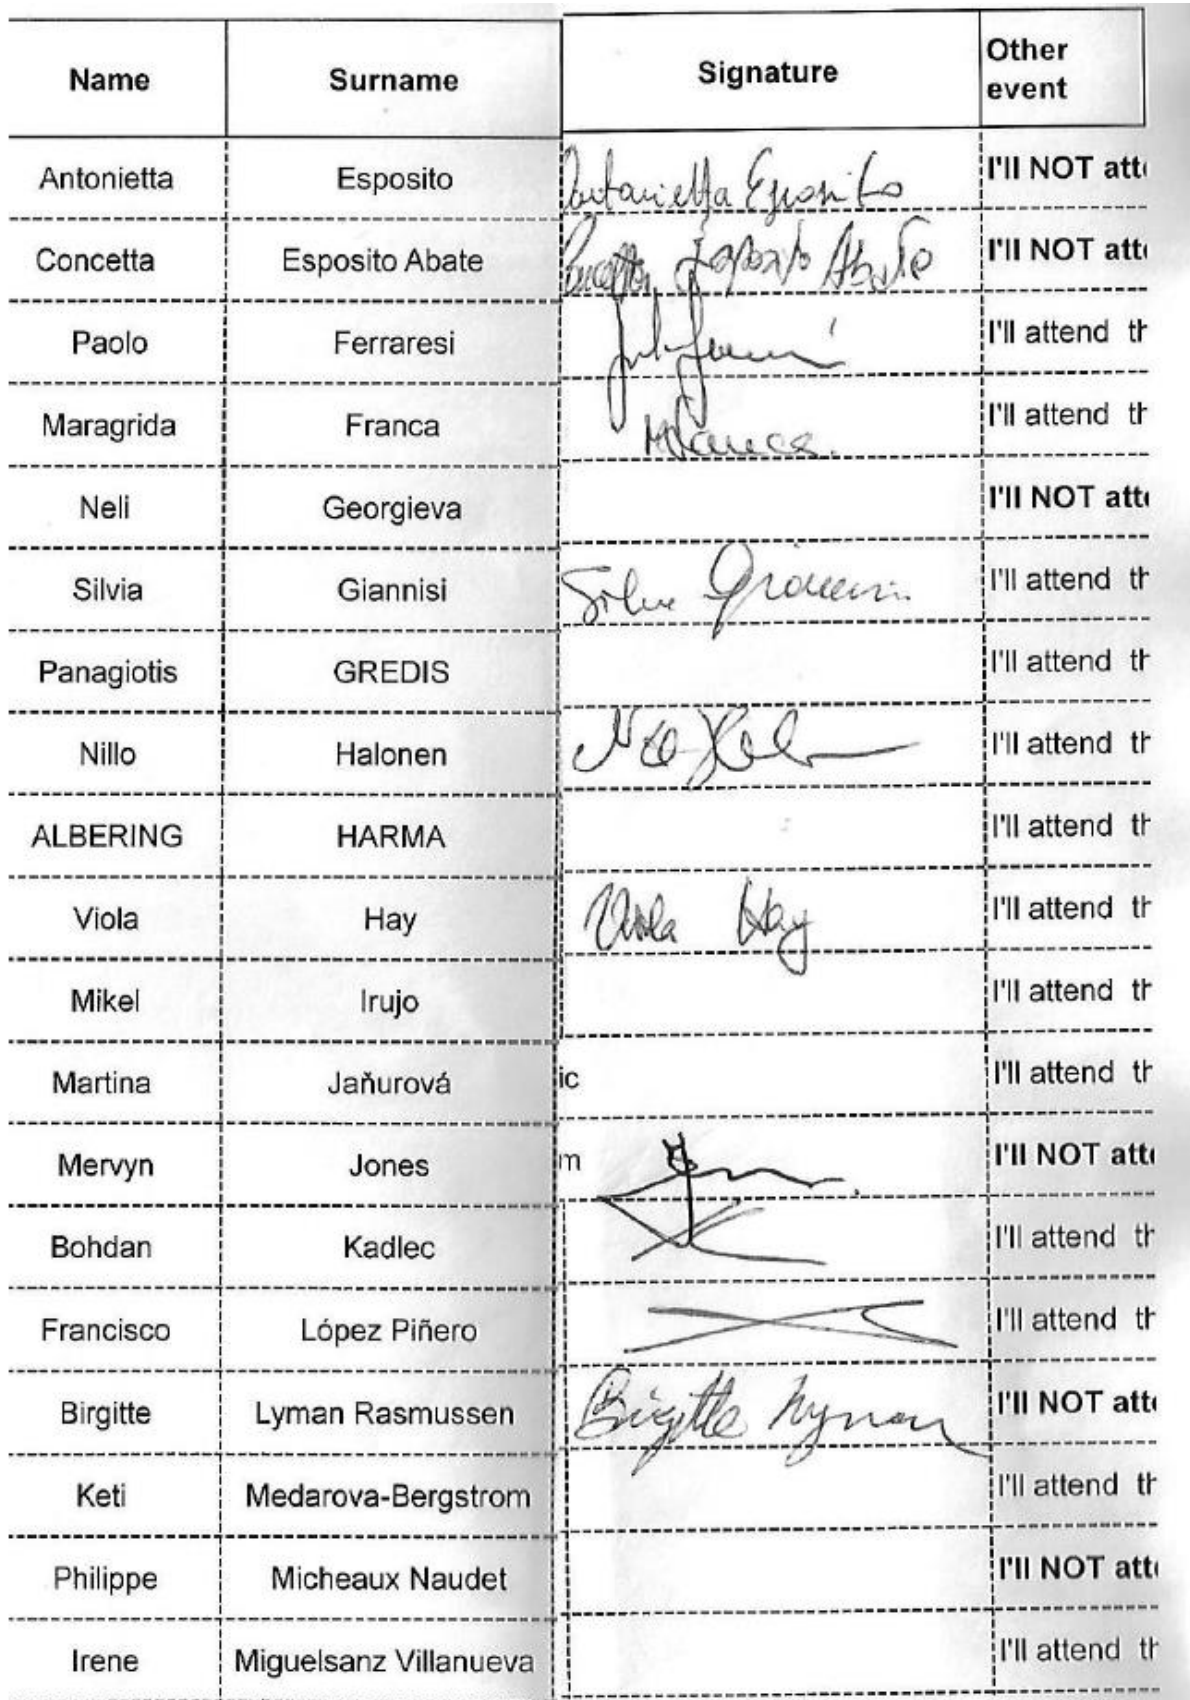 Name Surname Signature Other event
Antonietta Esposito Antonietta Esposito I'll NOT att
Concetta Esposito Abate Concetta Esposito Abate I'll NOT att
Paolo Ferraresi I'll attend th
Maragrida Franca MFranca. I'll attend th
Neli Georgieva I'll NOT att
Silvia Giannisi Silvia I'll attend th
Panagiotis GREDIS I'll attend th
Nillo Halonen I'll attend th
ALBERING HARMA I'll attend th
Viola Hay Viola Hay I'll attend th
Mikel Irujo I'll attend th
Martina Jaňurová ic I'll attend th
Mervyn Jones m I'll NOT att
Bohdan Kadlec I'll attend th
Francisco López Piñero I'll attend th
Birgitte Lyman Rasmussen Birgitte Lyman I'll NOT att
Keti Medarova-Bergstrom I'll attend th
Philippe Micheaux Naudet I'll NOT att
Irene Miguelsanz Villanueva I'll attend th